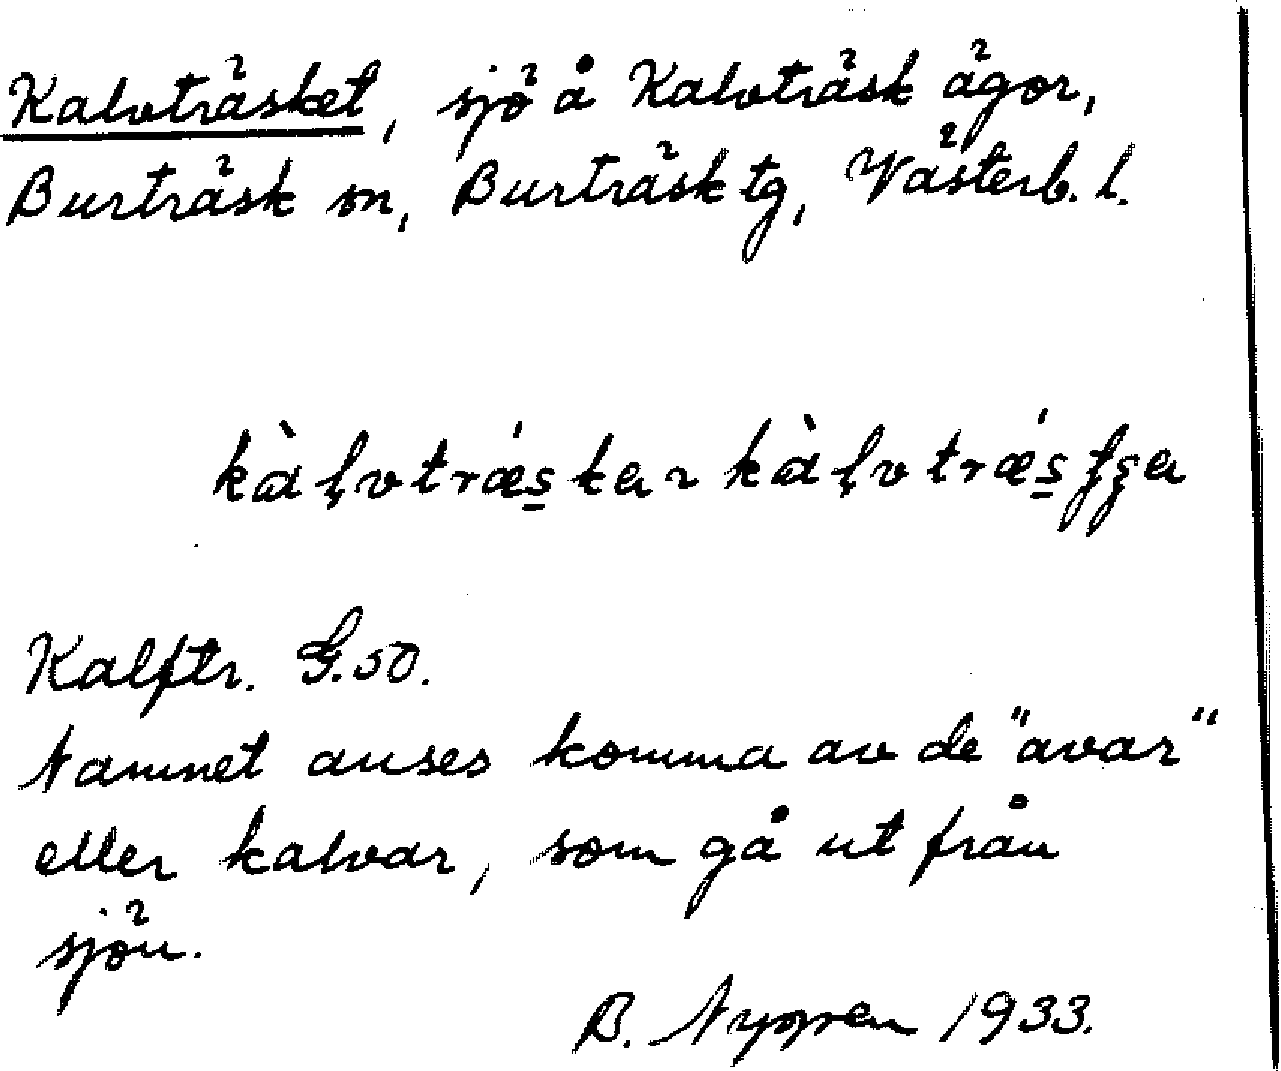 Kalvträsket, sjö å Kalvträsk ägor,
Burträsk sn, Burträsk tg, Västerb. l.
Kalftr. G.50.
Namnet anses komma av de "avar"
eller kalvar, som gå ut från
sjön.
B. 1933.